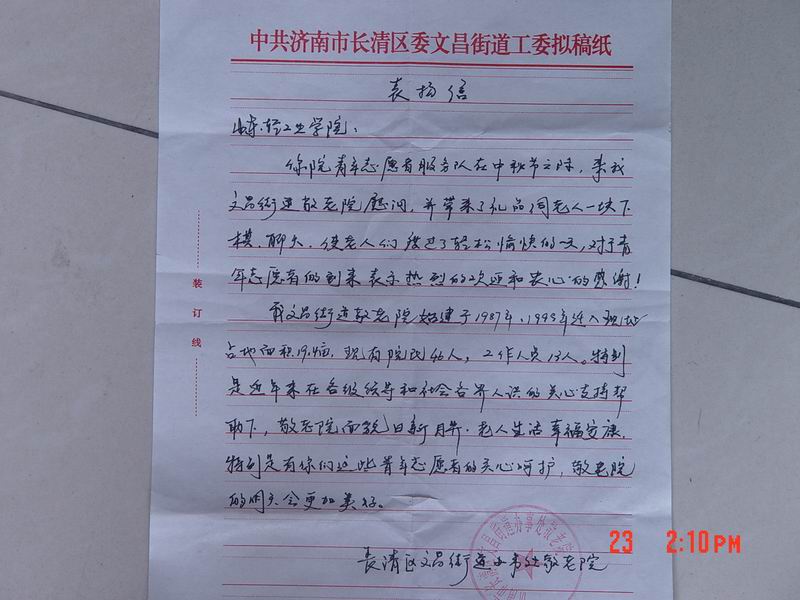 中共济南市长清区委文昌街道工委拟稿纸
表扬信
山东轻工业学院：
你院青年志愿者服务队在中秋节之际，来我
文昌街道敬老院慰问，并带来了礼品同老人一块下
棋、聊天，使老人们度过了轻松愉快的一天，对于青
年志愿者的到来表示热烈的欢迎和衷心的感谢！
我文昌街道敬老院始建于1987年，1999年迁入现址
占地面积19.4亩，现有院民46人，工作人员13人。特别
是近年来在各级领导和社会各界人识的关心支持帮
助下，敬老院面貌日新月异，老人生活幸福安康，
特别是有你们这些青年志愿者的关心呵护，敬老院
的明天会更加美好。
长清区文昌街道办事处敬老院
装订线
23 2:10PM